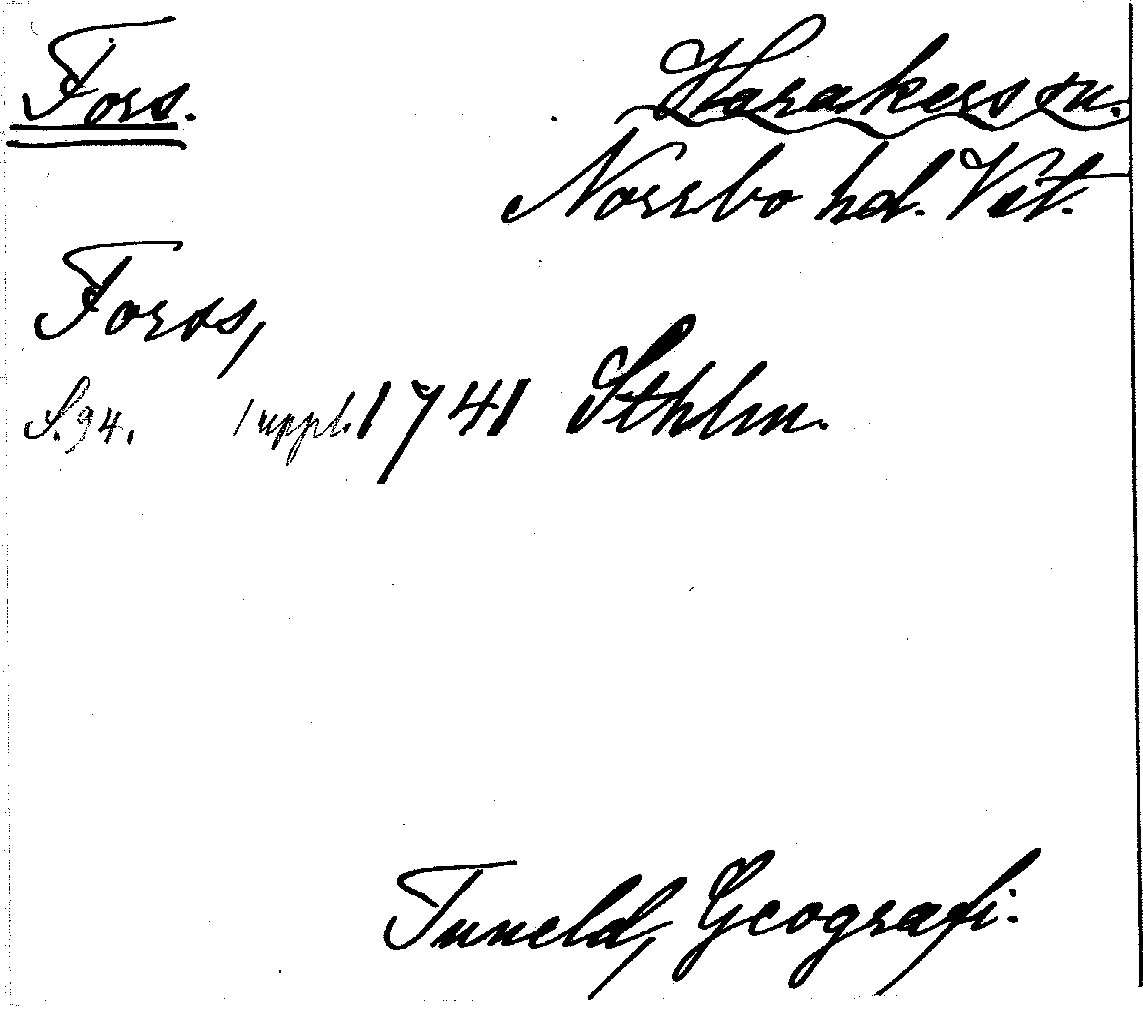 Fors.
Harakers sn.
Norrbo hd. Vst.
Forss,
S. 94. uppl. 1741 Sthlm.
Tuneld, Geografi.